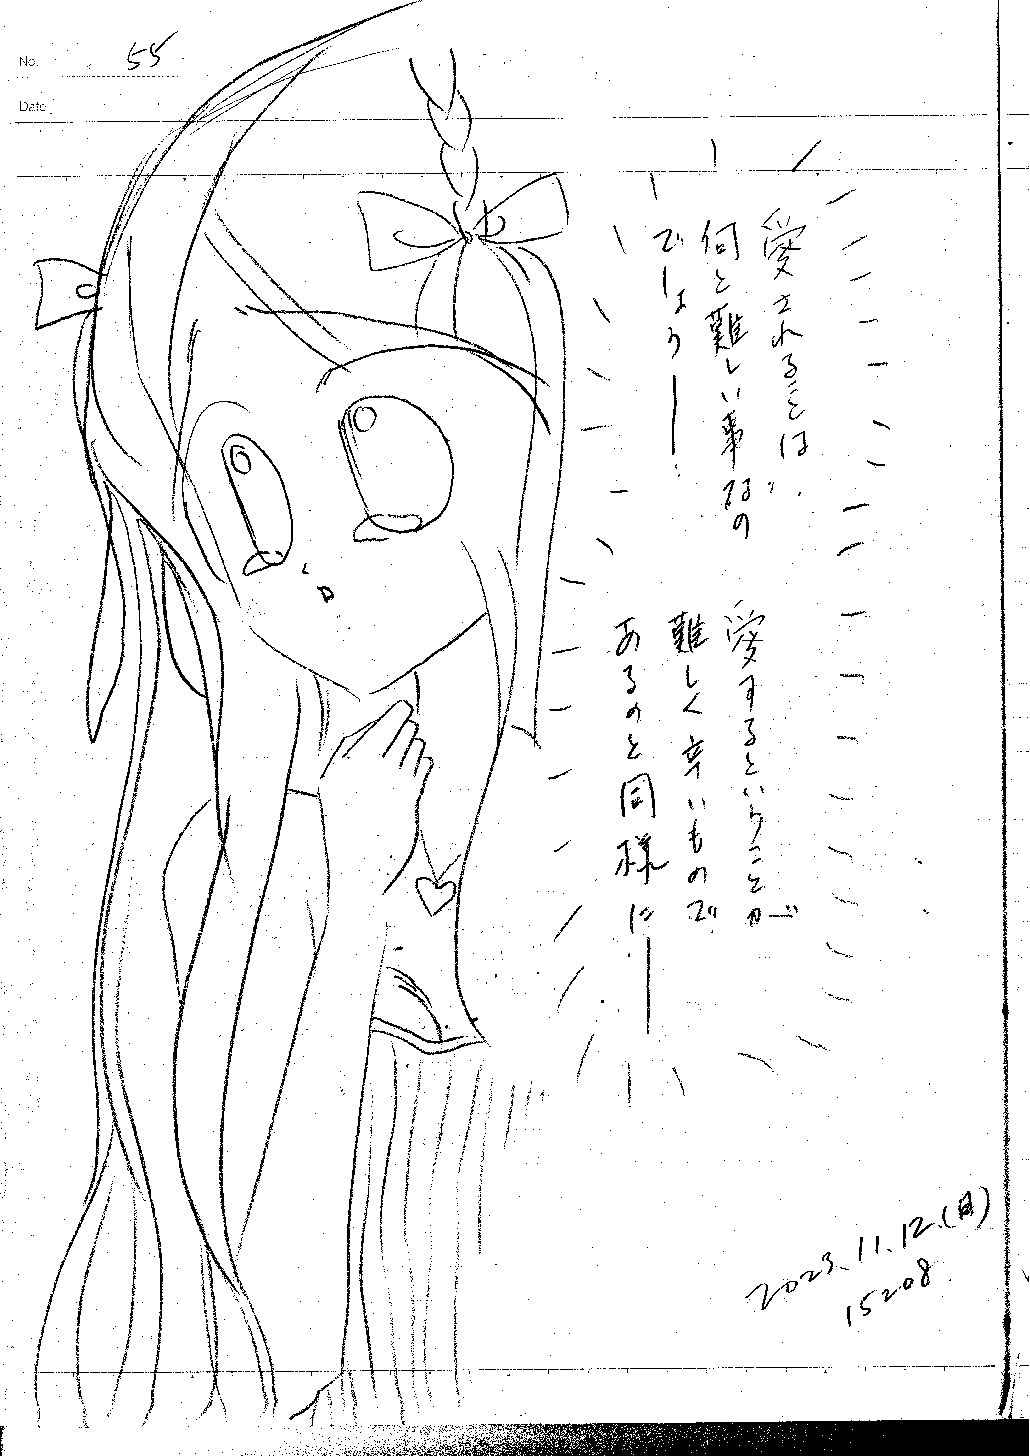 No. 55
Date
愛されることは、
何と難しい事なの
でしょう――
愛するということが
難しく辛いもので
あるのと同様に――
2023.11.12.(日)
15:08